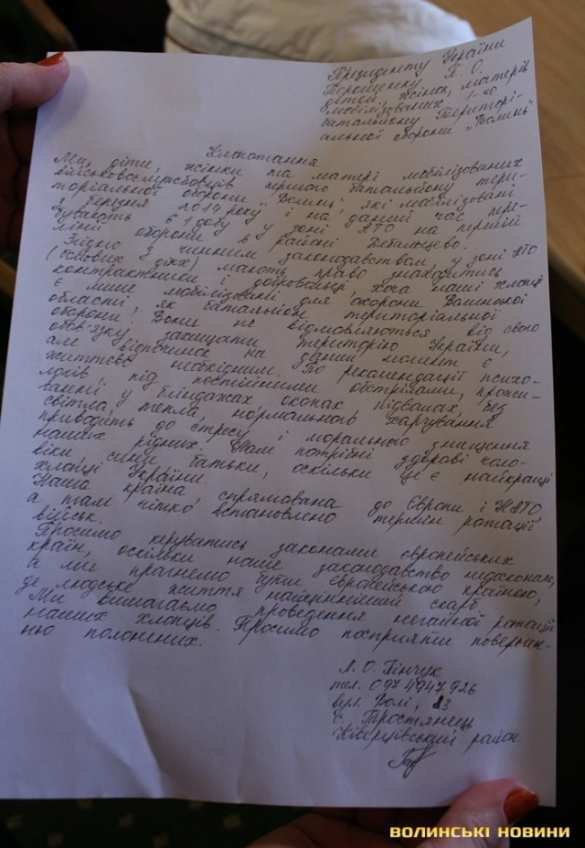 Президенту України
Порошенку П. О.
дітей, жінок, матерів
мобілізованих 1-го
батальйону Територі-
альної оборони "Волинь"
Клопотання
Ми, діти, жінки та матері мобілізованих
військовослужбовців першого батальйону тери-
торіальної оборони "Волинь", які мобілізовані
з березня 2014 року і на даний час пере-
бувають є добу у зоні АТО на першій
лінії оборони в районі Дебальцево.
Згідно з чинним законодавством, у зоні АТО
(бойових діях) мають право знаходитись
контрактники і добровольці, хоча наші хлопці
є лише мобілізовані для охорони Волинської
області, як батальйон територіальної
оборони! Вони не відмовляються від свого
обов'язку захищати територію України,
але відпочинок на даний момент є
життєво необхідним. По рекомендації психо-
логів, під постійними обстрілами, прожи-
ванні у бліндажах окопах підвалах, без
світла, тепла, нормального харчування
приводить до стресу і морального знищення
наших рідних. Нам потрібні здорові чоло-
віки, сини, батьки, оскільки це є найкращі
хлопці України.
Наша країна, спрямована до Європи і НАТО
а там чітко встановлено термін ротації
військ.
Просимо керуватись законами європейських
країн, оскільки наше законодавство недосконале,
а ми прагнемо бути європейською країною,
де людське життя найцінніший скарб.
Ми вимагаємо проведення негайної ротації
наших хлопців. Просимо посприяти повернен-
ню полонених.
Л. О. Пінчук
тел. 0974947926
вул. Волі, 83
с. Тростянець
Ківерцівський район
ВОЛИНСЬКІ НОВИНИ